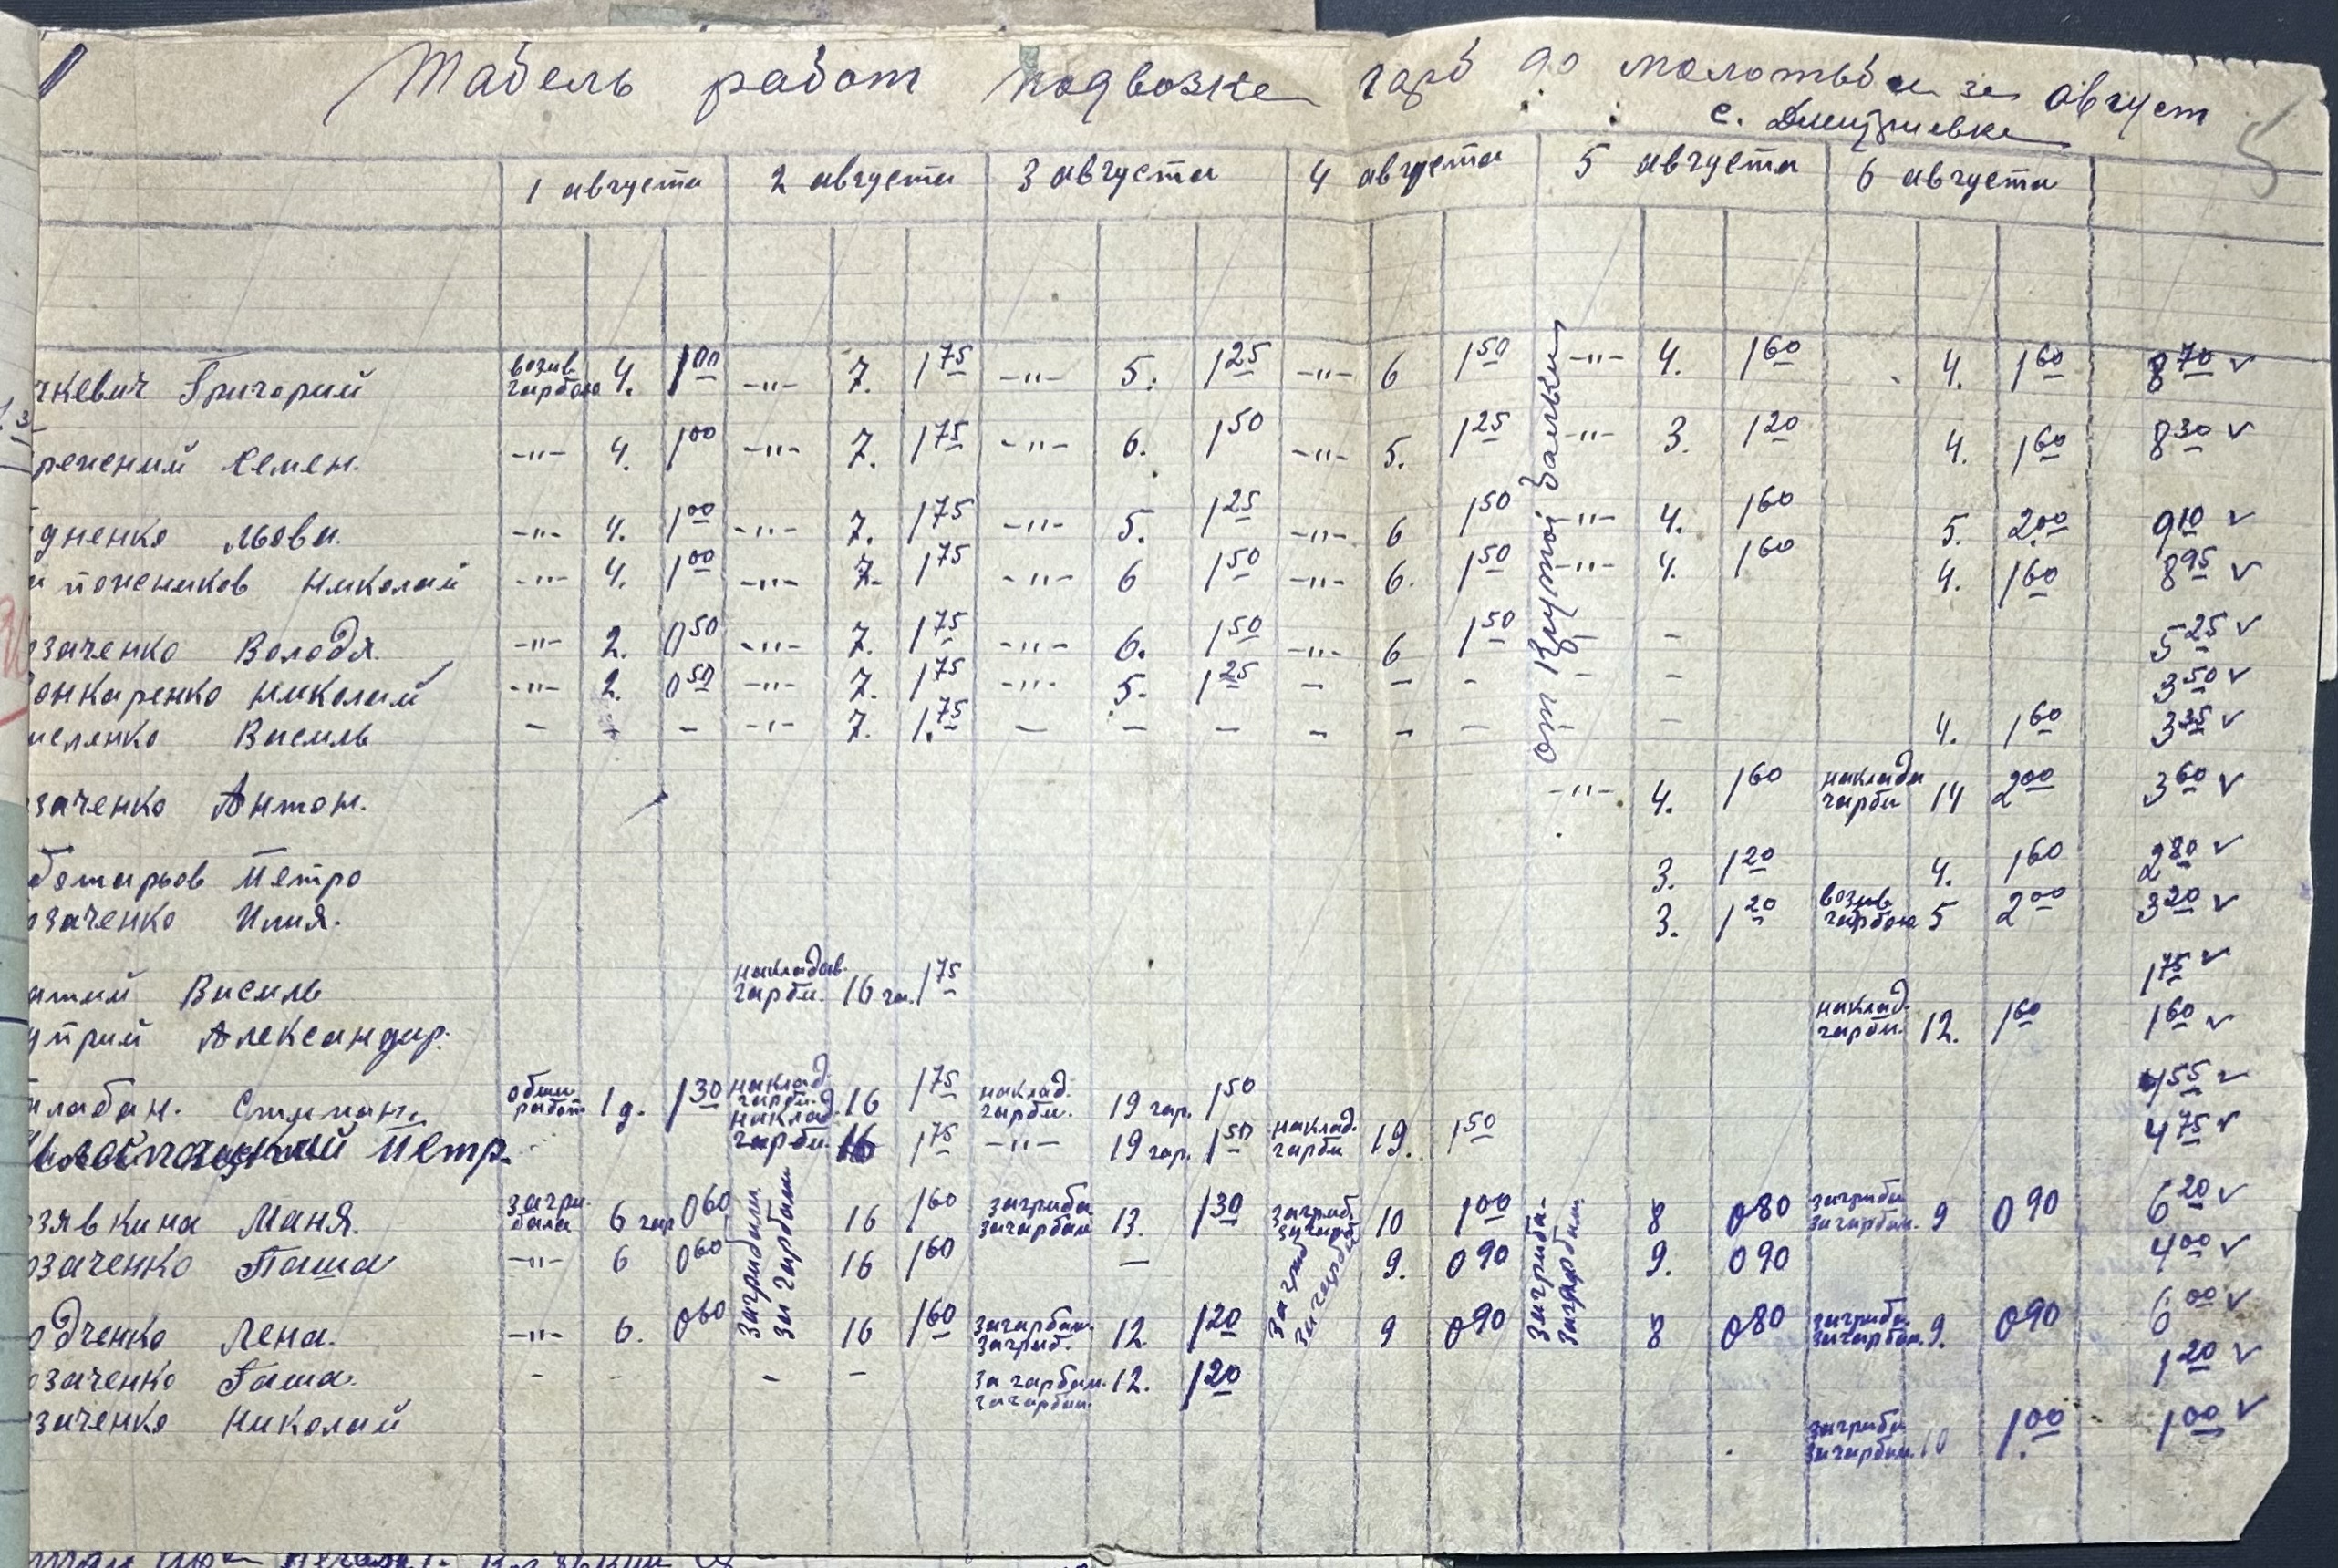 Табель работ подвозке гарб до молотьби за август
с. Дмитриевка
5
1 августа 2 августа 3 августа 4 августа 5 августа 6 августа
от Крутой балки
чкевич Григорий возив гарбою 4. 1 00 -"- 7. 1 75 -"- 5. 1 25 -"- 6 1 50 -"- 4. 1 60 4. 1 60 8 70 v
Семен. -"- 4. 1 00 -"- 7. 1 75 -"- 6. 1 50 -"- 5. 1 25 -"- 3. 1 20 4. 1 60 8 30 v
дненко Льова. -"- 4. 1 00 -"- 7. 1 75 -"- 5. 1 25 -"- 6 1 50 -"- 4. 1 60 5. 2 00 9 10 v
Николай -"- 4. 1 00 -"- 7. 1 75 -"- 6 1 50 -"- 6. 1 50 -"- 4. 1 60 4. 1 60 8 95 v
заченко Володя. -"- 2. 0 50 -"- 7. 1 75 -"- 6. 1 50 -"- 6 1 50 - - 5 25 v
онкаренко Николай -"- 2. 0 50 -"- 7. 1 75 -"- 5. 1 25 - - - - - 3 50 v
Василь - - - -"- 7. 1. 75 - - - - - - - - 4. 1 60 3 35 v
заченко Антон. -"- 4. 1 60 наклада гарби 14 2 00 3 60 v
ботарьов Петро 3. 1 20 4. 1 60 2 80 v
заченко Илия. 3. 1 20 возив гарбою 5 2 00 3 20 v
Василь накладав. гарби. 16 га. 1 75 1 75 v
Александр. наклад. гарби. 12. 1 60 1 60 v
лабан. Степан. общи работ 1 д. 1 30 наклад. гарби. 16 1 75 наклад. гарби. 19 гар. 1 50 4 55 v
Петр. наклад. гарби. 16 1 75 -"- 19 гар. 1 50 наклад. гарби 19. 1 50 4 75 v
зявкина Маня. загри-бала 6 гар 0 60 загрибали за гарбами 16 1 60 загриба загарбам 13. 1 30 загриб. загарб 10 1 00 загриба- загарбам. 8 0 80 загриба загарбам. 9 0 90 6 20 v
заченко Паша -"- 6 0 60 16 1 60 - загриб загарби 9. 0 90 9. 0 90 4 00 v
дченко Лена. -"- 6. 0 60 16 1 60 загарбам. загриб. 12. 1 20 9 0 90 8 0 80 загриба загарбам. 9. 0 90 6 00 v
заченко Гаша. - - - за гарбам. загарбам. 12. 1 20 1 20 v
заченко Николай загриба загарбам. 10 1. 00 1 00 v